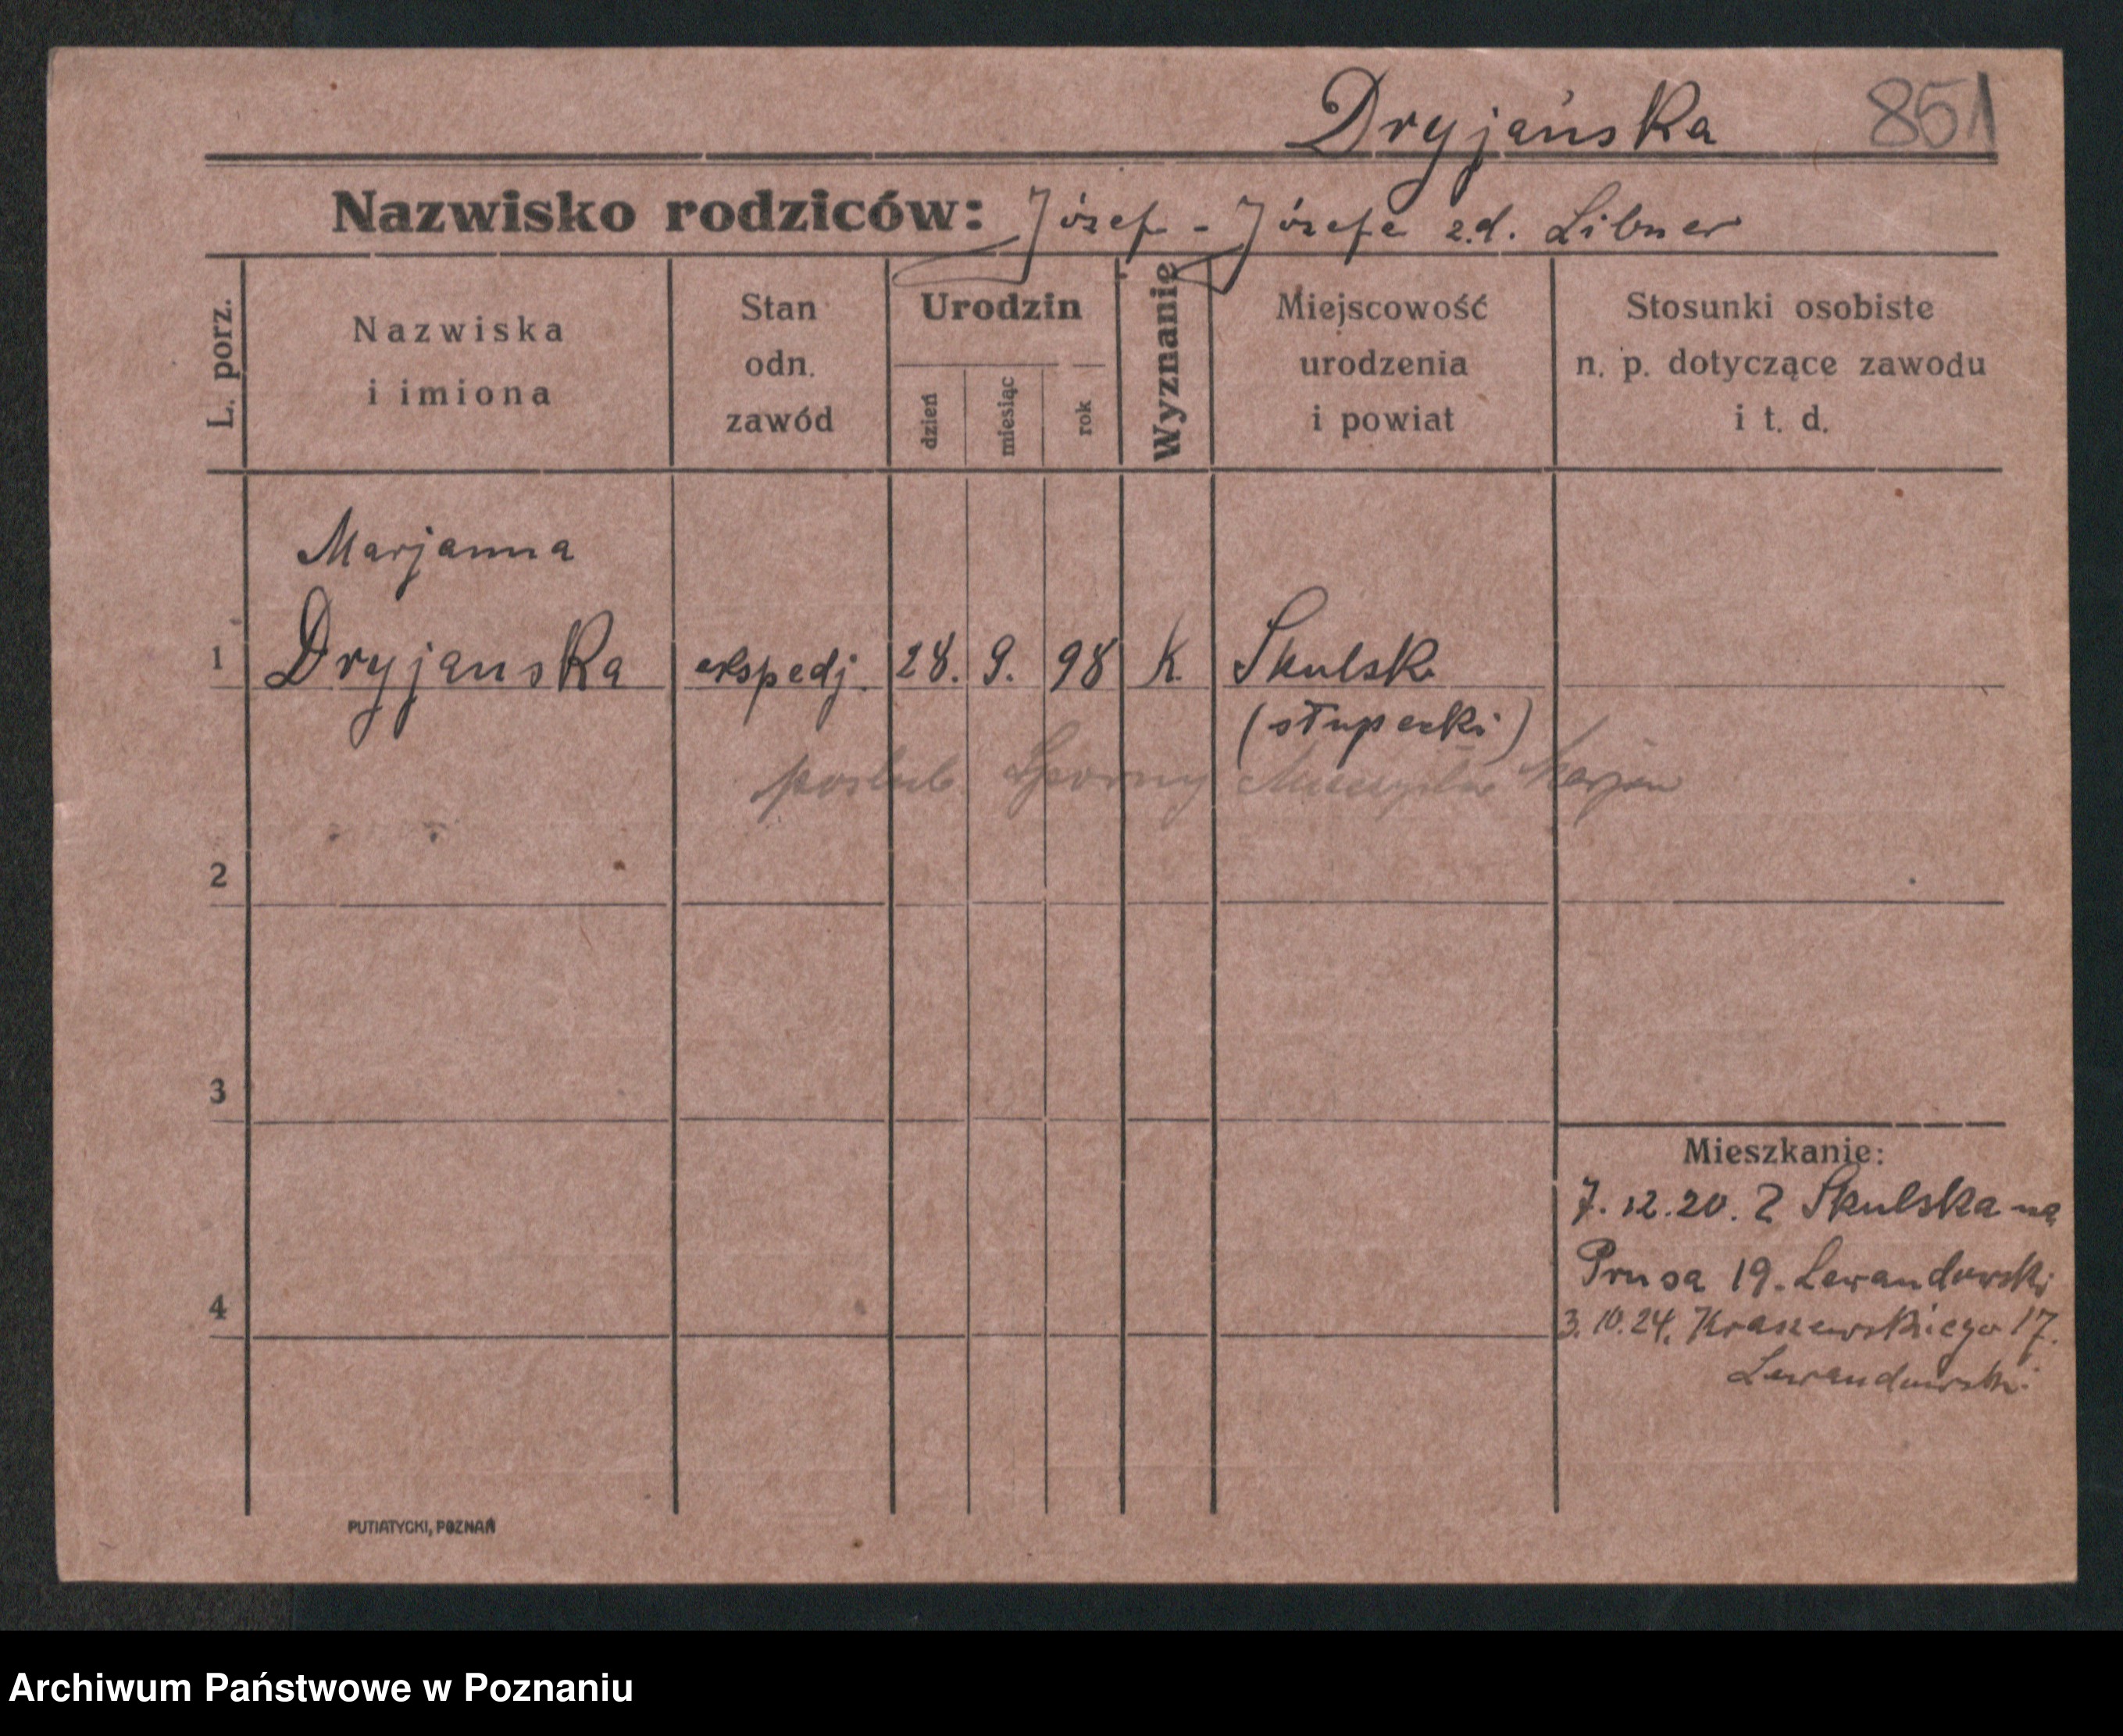 Dryjańska 851
Nazwisko rodziców: Józef - Józefa z.d. Libner
L. porz.
Nazwiska
i imiona
Stan
odn.
zawód
Urodzin
dzień
miesiąc
rok
Wyznanie
Miejscowość
urodzenia
i powiat
Stosunki osobiste
n. p. dotyczące zawodu
i t. d.
Marjanna
1 Dryjanska ekspedj. 28. 9. 98 K. Skulsk
(słupecki)
poślub. Marjan
2
3
Mieszkanie:
7. 12. 20. Z Skulska na
Prusa 19. Lewandowski
4
3. 10. 24. Kraszewskiego 17.
Lewandowski
PUTIATYCKI, POZNAŃ
Archiwum Państwowe w Poznaniu